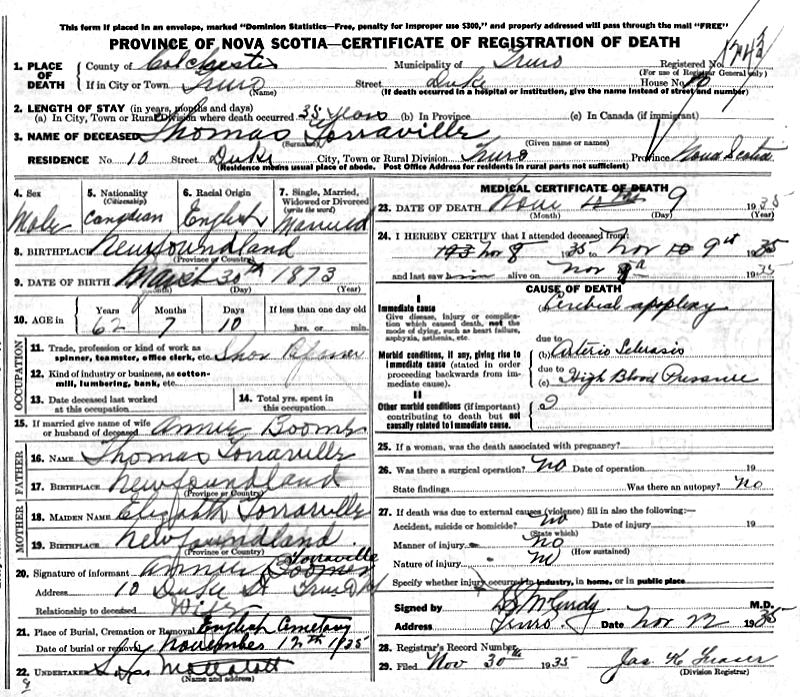 This form if placed in an envelope, marked "Dominion Statistics—Free, penalty for improper use $300," and properly addressed will pass through the mail "FREE"
PROVINCE OF NOVA SCOTIA—CERTIFICATE OF REGISTRATION OF DEATH
1. PLACE OF DEATH County of Colchester Municipality of Truro Registered No.
(For use of Registrar General only)
If in City or Town Truro Street Duke House No. 10
(Name) (If death occurred in a hospital or institution, give the name instead of street and number)
2. LENGTH OF STAY (in years, months and days)
(a) In City, Town or Rural Division where death occurred 35 years (b) In Province (c) In Canada (if immigrant)
3. NAME OF DECEASED Thomas Torraville
(Surname) (Given name or names)
RESIDENCE No. 10 Street Duke City, Town or Rural Division Truro Province Nova Scotia
(Residence means usual place of abode. Post Office Address for residents in rural parts not sufficient)
4. Sex Male
5. Nationality (Citizenship) Canadian
6. Racial Origin English
7. Single, Married, Widowed or Divorced (write the word) Married
8. BIRTHPLACE Newfoundland
(Province or Country)
9. DATE OF BIRTH March 30th 1873
(Month) (Day) (Year)
10. AGE in Years Months Days If less than one day old
62 7 10 hrs. or min.
OCCUPATION
11. Trade, profession or kind of work as spinner, teamster, office clerk, etc. Shoe
12. Kind of industry or business, as cotton-mill, lumbering, bank, etc.
13. Date deceased last worked at this occupation
14. Total yrs. spent in this occupation
15. If married give name of wife or husband of deceased Annie Boomes
FATHER
16. NAME Thomas Torraville
17. BIRTHPLACE Newfoundland
(Province or Country)
MOTHER
18. MAIDEN NAME Elizabeth Torraville
19. BIRTHPLACE Newfoundland
(Province or Country)
20. Signature of informant Annie Torraville
Address 10 Duke St Truro NS
Relationship to deceased Wife
21. Place of Burial, Cremation or Removal English Cemetary
Date of burial or removal November 12th 1935
22. UNDERTAKER
(Name and address)
MEDICAL CERTIFICATE OF DEATH
23. DATE OF DEATH Nov 9 1935
(Month) (Day) (Year)
24. I HEREBY CERTIFY that I attended deceased from:
Nov 8 1935 to Nov 9th 1935
and last saw him alive on Nov 1935
CAUSE OF DEATH
I
Immediate cause (a) Cerebral apoplexy
Give disease, injury or complication which caused death, not the mode of dying, such as heart failure, asphyxia, asthenia, etc.
due to
Morbid conditions, if any, giving rise to immediate cause (stated in order proceeding backwards from immediate cause). (b) Arterio Sclerosis
due to
(c) High Blood Pressure
II
Other morbid conditions (if important) contributing to death but not causally related to immediate cause.
25. If a woman, was the death associated with pregnancy?
26. Was there a surgical operation? No Date of operation 19
State findings Was there an autopsy? No
27. If death was due to external causes (violence) fill in also the following:—
Accident, suicide or homicide? No Date of injury 19
(State which)
Manner of injury No
(How sustained)
Nature of injury No
Specify whether injury occurred in industry, in home, or in public place
Signed by McCurdy M.D.
Address Truro Date Nov 22 1935
28. Registrar's Record Number
29. Filed Nov 30th 1935 Jas K Fraser
(Division Registrar)